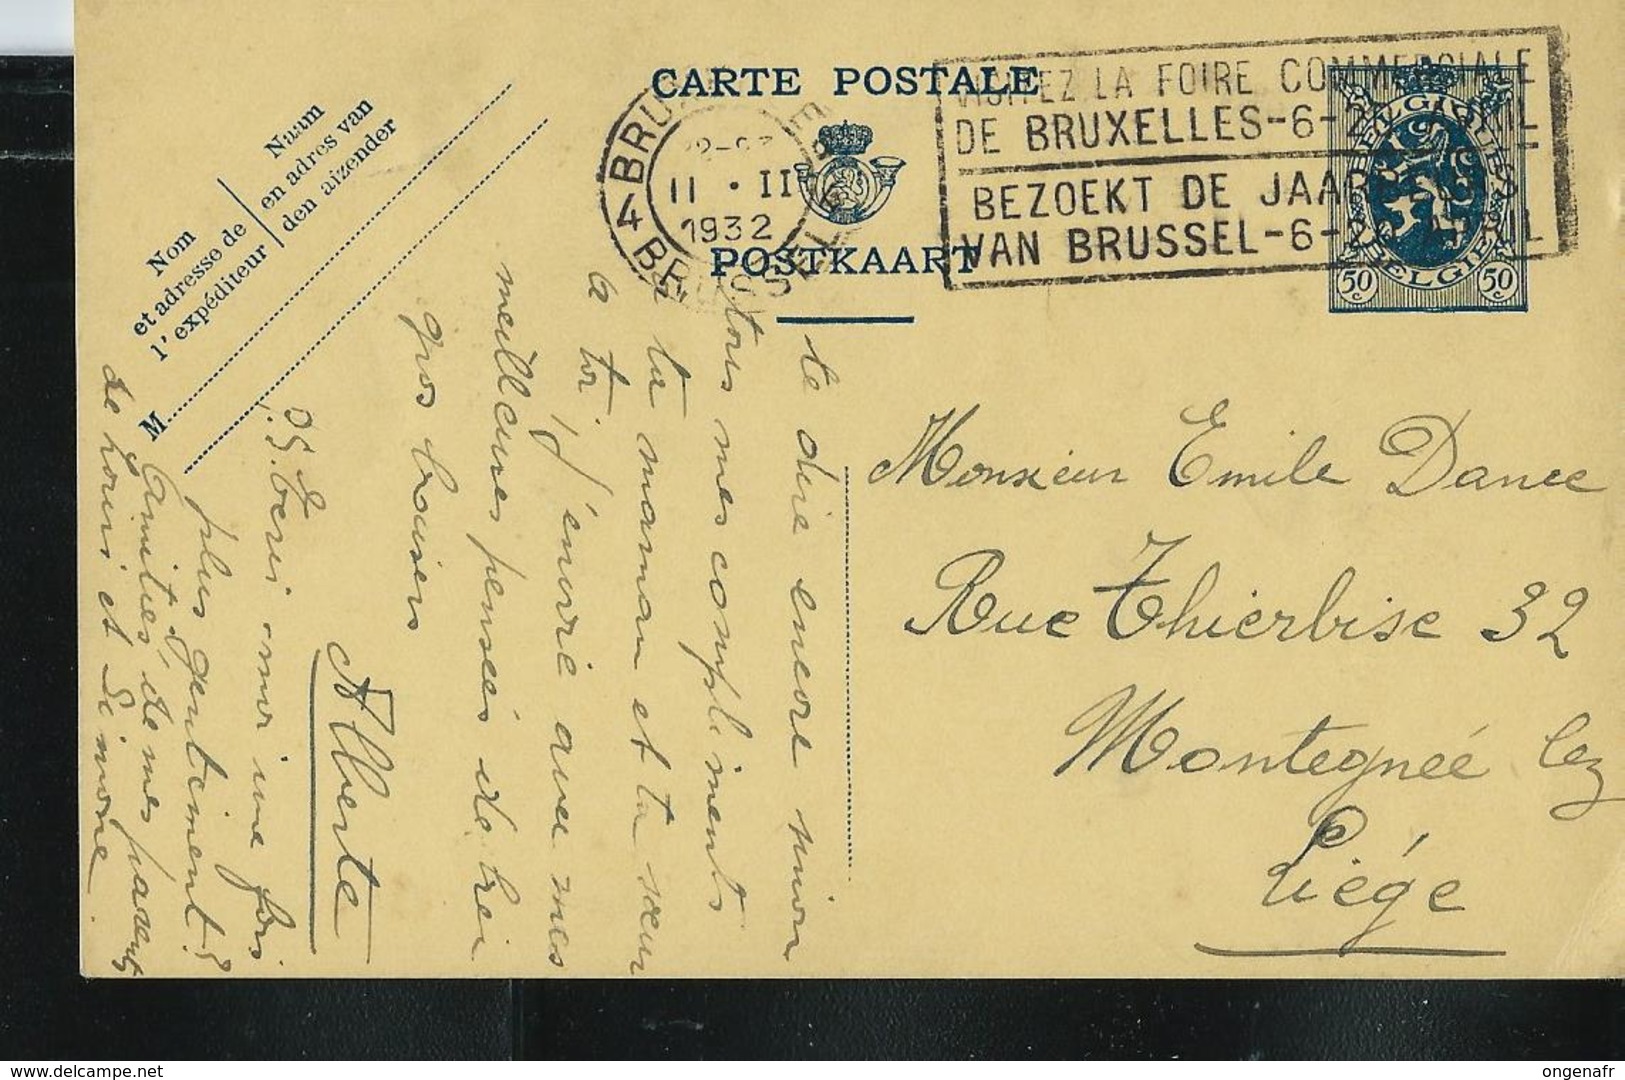 CARTE POSTALE
POSTKAART
VISITEZ LA FOIRE COMMERCIALE
DE BRUXELLES-6-20 AVRIL
BEZOEKT DE JAARBEURS
VAN BRUSSEL-6-20 APRIL
4 BRU
11 • II
1932
BELGIQUE
BELGIE
50 c
50 c
Nom
et adresse de
l'expéditeur
Naam
en adres van
den afzender
M
Monsieur Emile Dance
Rue Thierbise 32
Montegnée lez
Liége
te dire encore
tous mes compliments
à ta maman et ta sœur
à toi. J'envoie avec mes
meilleures pensées de
gros baisers
Alberte
P.S. Ecris une fois
plus gentiment!
Amitiés de mes parents
de Louis et Simone
ongenafr